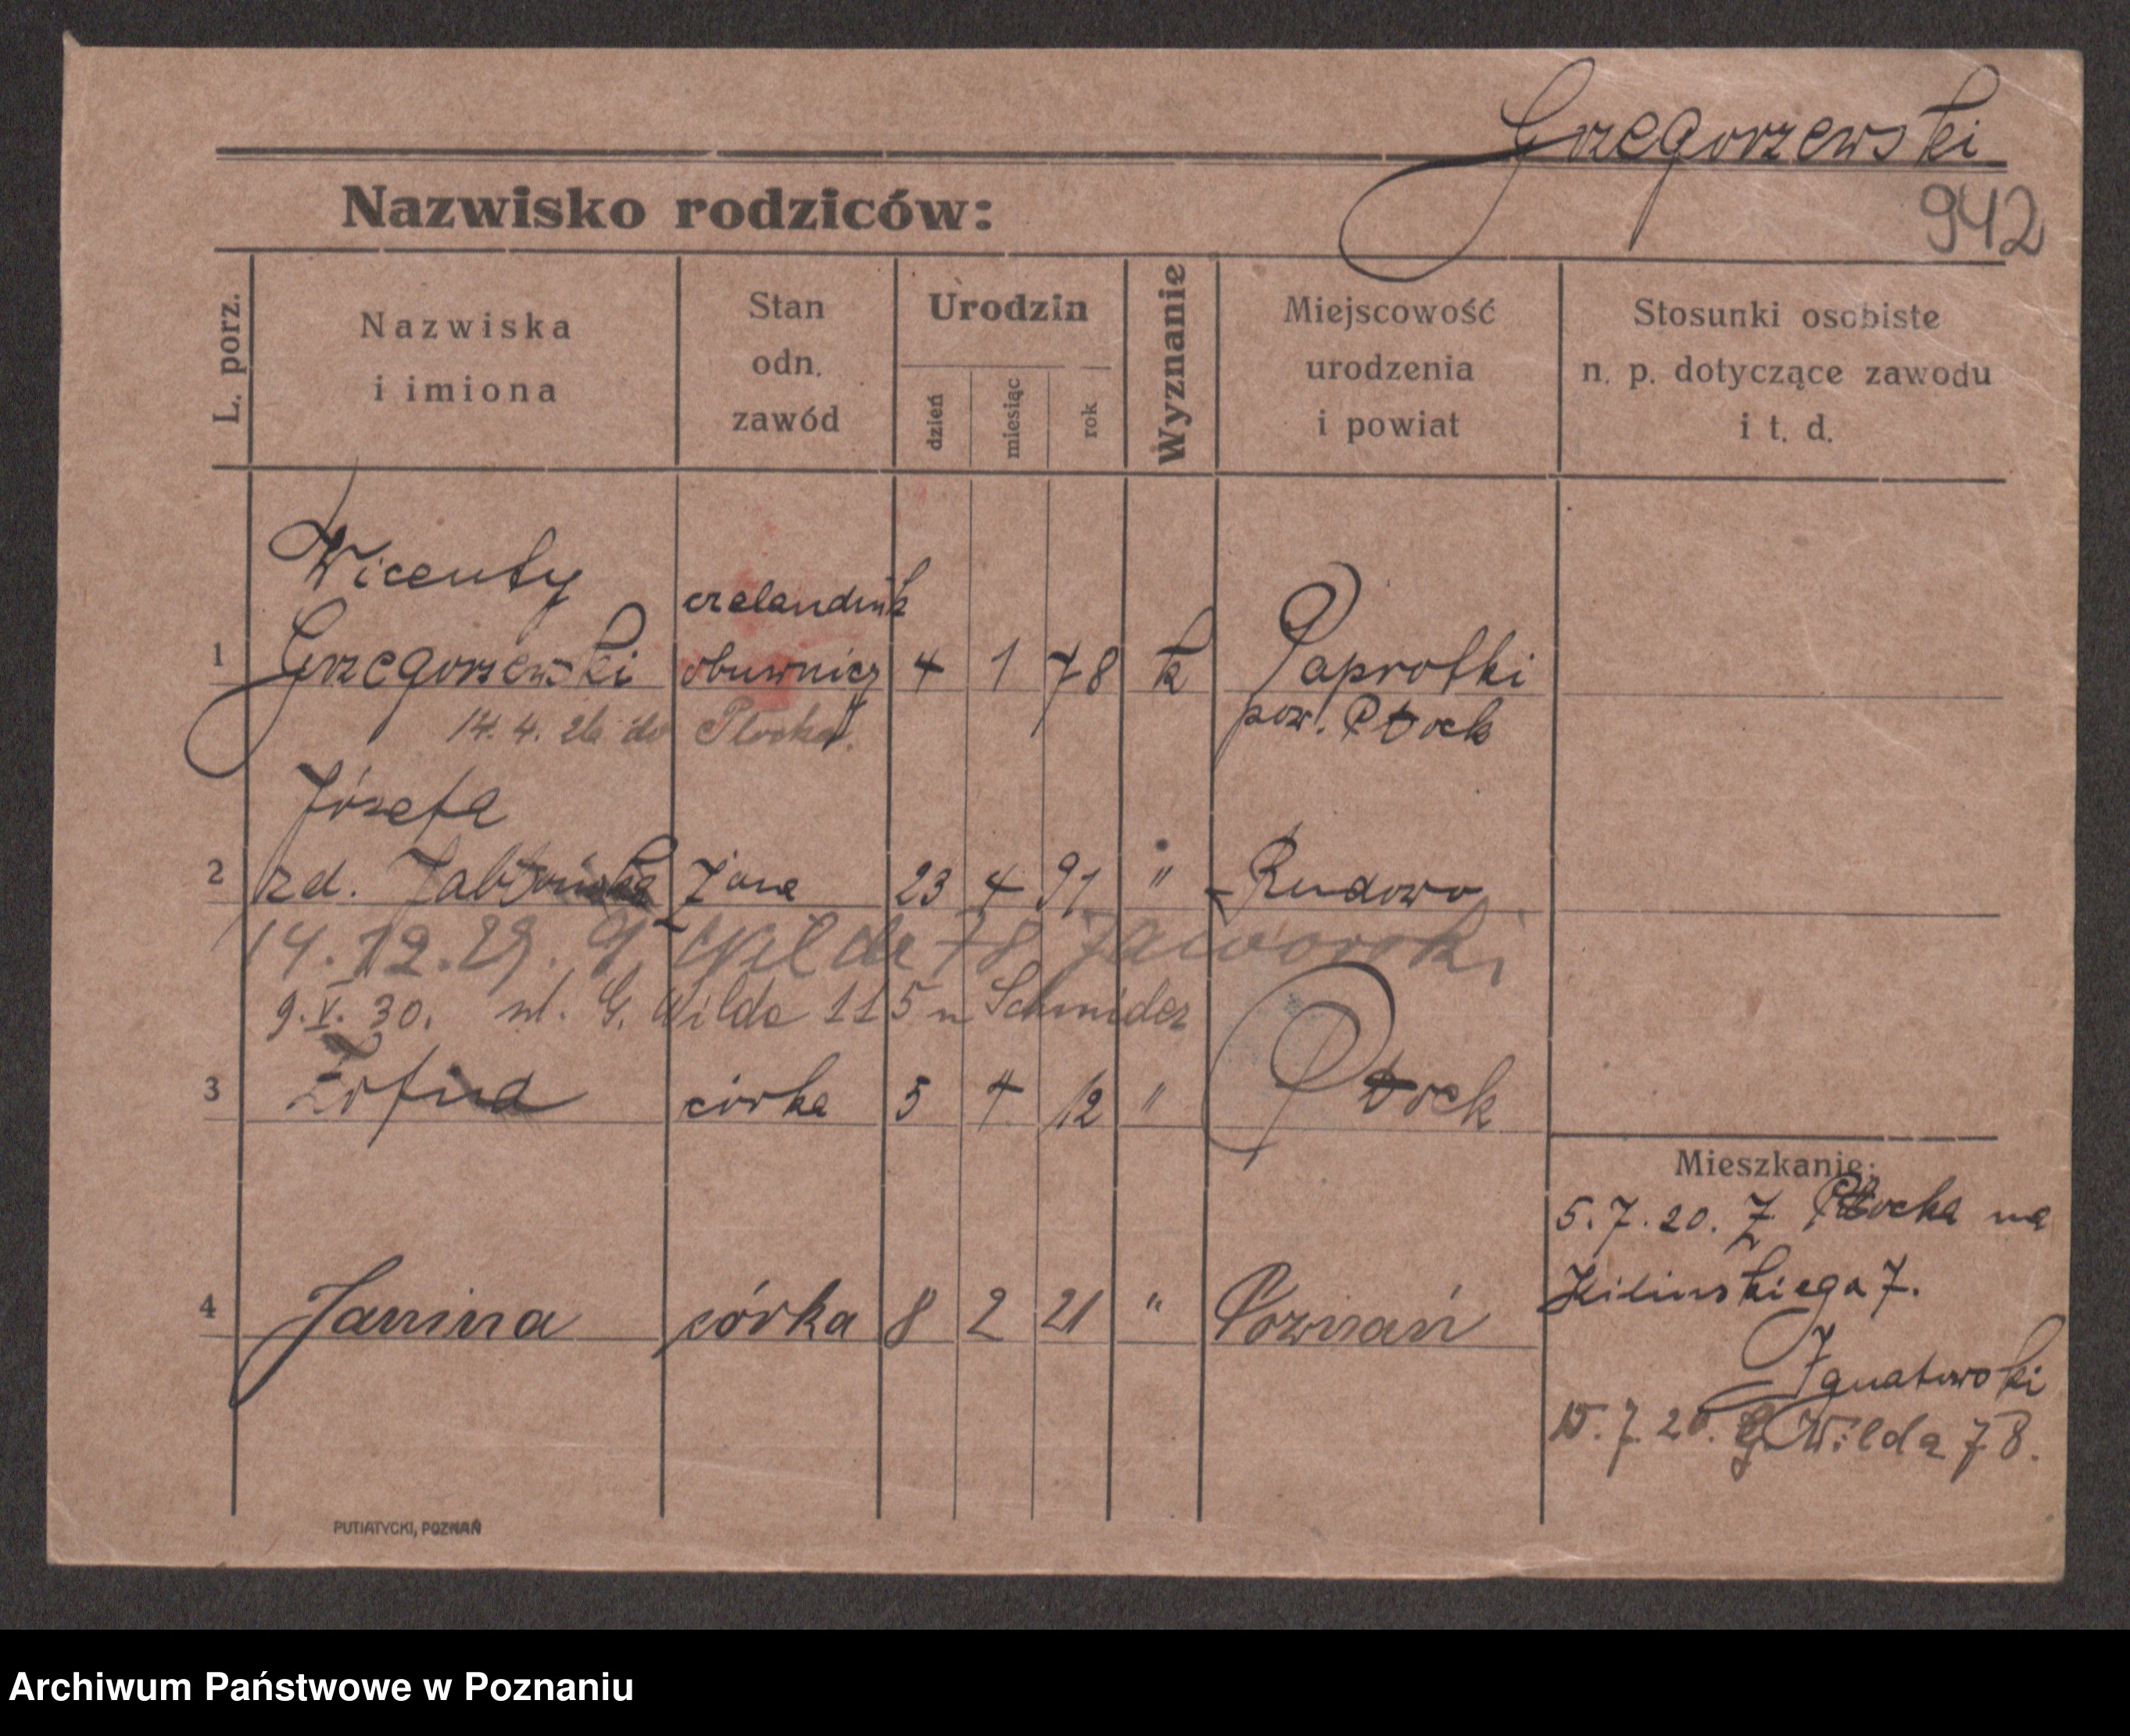 Grzegorzewski
942
Nazwisko rodziców:
L. porz.
Nazwiska
i imiona
Stan
odn.
zawód
Urodzin
dzień
miesiąc
rok
Wyznanie
Miejscowość
urodzenia
i powiat
Stosunki osobiste
n. p. dotyczące zawodu
i t. d.
Wicenty
czelandnik
1 Grzegorzewski obuwnicz 4 1 78 k Paprotki
pow. Płock
14. 4. 26 do Płocka.
Józefa
2 zd. Jabłońska żona 23 4 91 " Rudowo
14. 12. 29. G. Wilda 78 Jaworski
9. V. 30. ul. G. Wilda 115 u Schneider
3 Zofia córka 5 4 12 " Płock
Mieszkanie:
5. 7. 20. Z Płocka na
Kilinskiega 7.
4 Janina córka 8 2 21 " Poznań
Ignatowski
15. 7. 20. G Wilda 78.
PUTIATYCKI, POZNAŃ
Archiwum Państwowe w Poznaniu